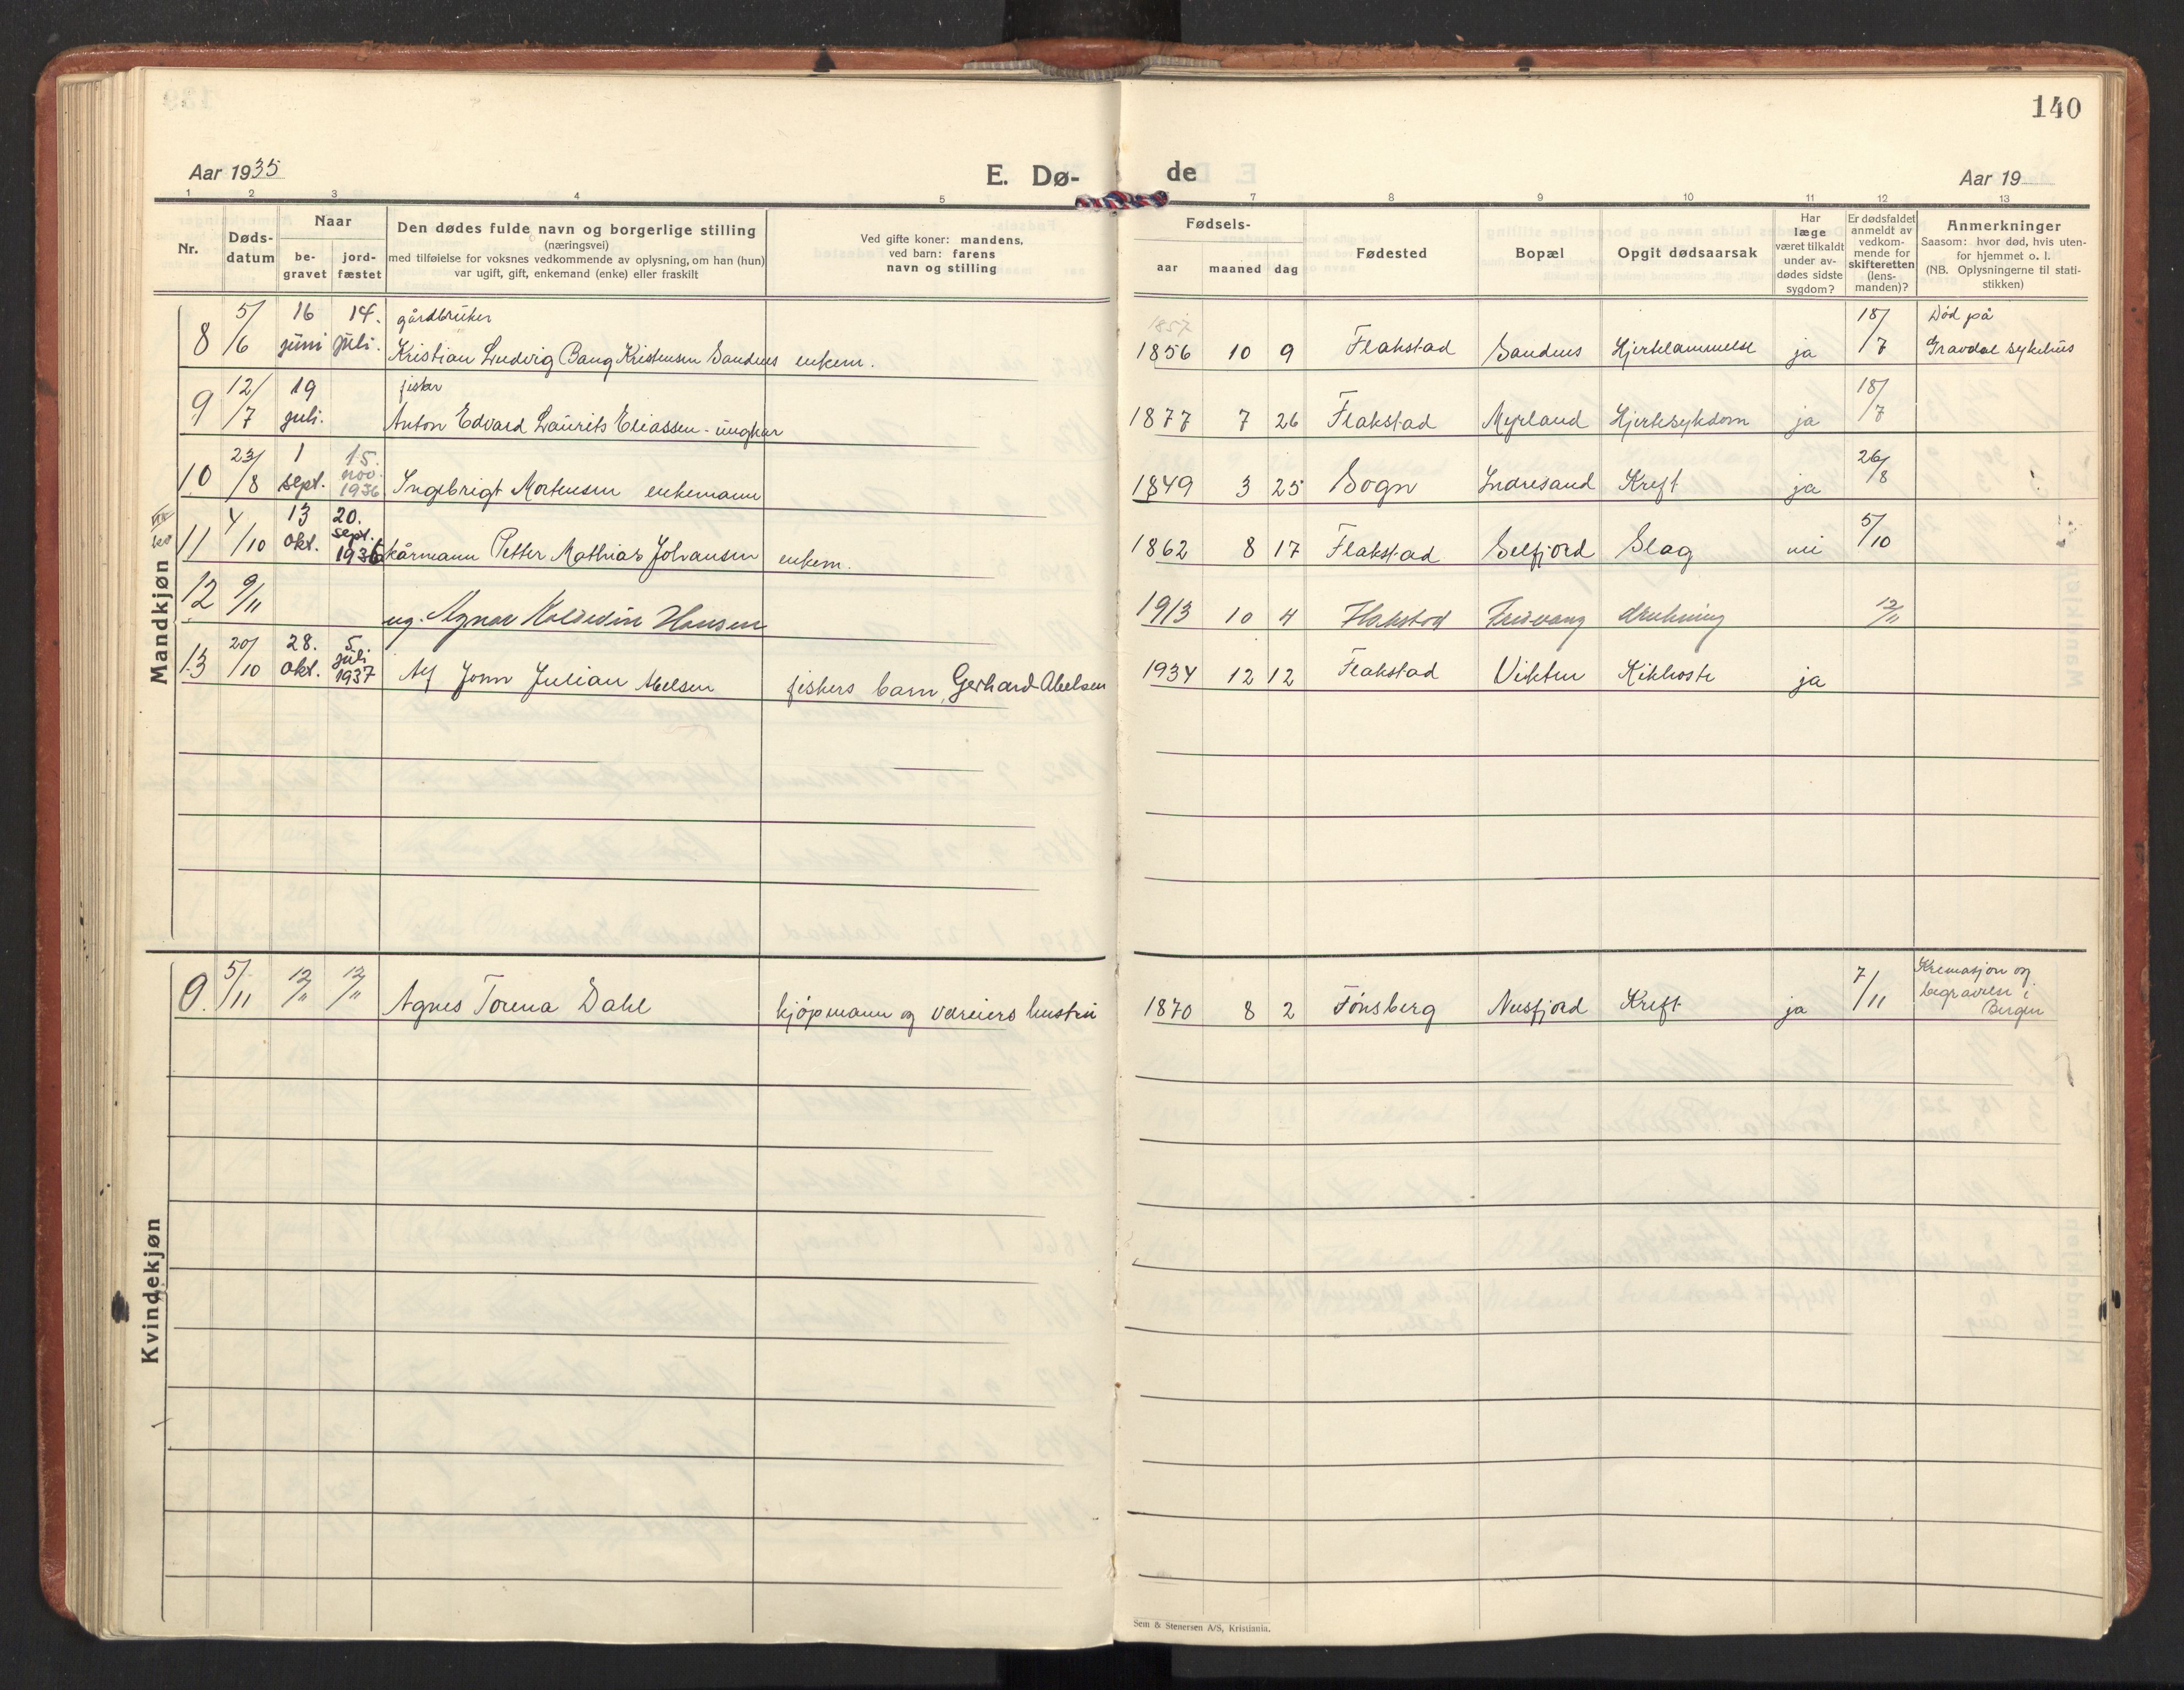 140
Aar 1935 E. Dø- de Aar 19
1 2 3 4 5 7 8 9 10 11 12 13
Nr.
Døds-
datum
Naar
be-
gravet
jord-
fæstet
Den dødes fulde navn og borgerlige stilling
(næringsvei)
med tilføielse for voksnes vedkommende av oplysning, om han (hun)
var ugift, gift, enkemand (enke) eller fraskilt
Ved gifte koner: mandens,
ved barn: farens
navn og stilling
Fødsels-
aar maaned dag
Fødested
Bopæl
Opgit dødsaarsak
Har
læge
været tilkaldt
under av-
dødes sidste
sygdom?
Er dødsfaldet
anmeldt av
vedkom-
mende for
skifteretten
(lens-
manden)?
Anmerkninger
Saasom: hvor død, hvis uten-
for hjemmet o. l.
(NB. Oplysningerne til stati-
stikken)
Mandkjøn
8 5/6 16 juni 14. juli. gårdbruker
Kristian Ludvig Bang Kristensen Sandnes enkem. 1857 1856 10 9 Flakstad Sandnes Hjertelammelse ja 18/7 Død på
Gravdal sykehus
9 12/7 19 juli. fisker
Anton Edvard Laurits Eliassen - ungkar 1877 7 26 Flakstad Myrland Hjertesykdom ja 18/7
10 23/8 1 sept. 15. nov. 1936 Ingebrigt Mortensen enkemann 1849 3 25 Sogn Indresand Kreft ja 26/8
11 4/10 13 okt. 20. sept. 1936 kårmann Petter Mathias Johansen enkem. 1862 8 17 Flakstad Selfjord Slag nei 5/10
12 9/11 ug. Agnar Hansen 1913 10 4 Flakstad Fredvang drukning 12/11
13 20/10 28. okt. 5. juli 1937 Alf Jonn Julian Abelsen fiskers barn, Gerhard Abelsen 1934 12 12 Flakstad Vikten Kikhoste ja
Kvindekjøn
9. 5/11 12/11 12/11 Agnes Torena Dahl kjøpmann og væreiers hustru 1870 8 2 Tønsberg Nusfjord Kreft ja 7/11 Kremasjon og
begravelse i
Bergen
Sem & Stenersen A/S, Kristiania.